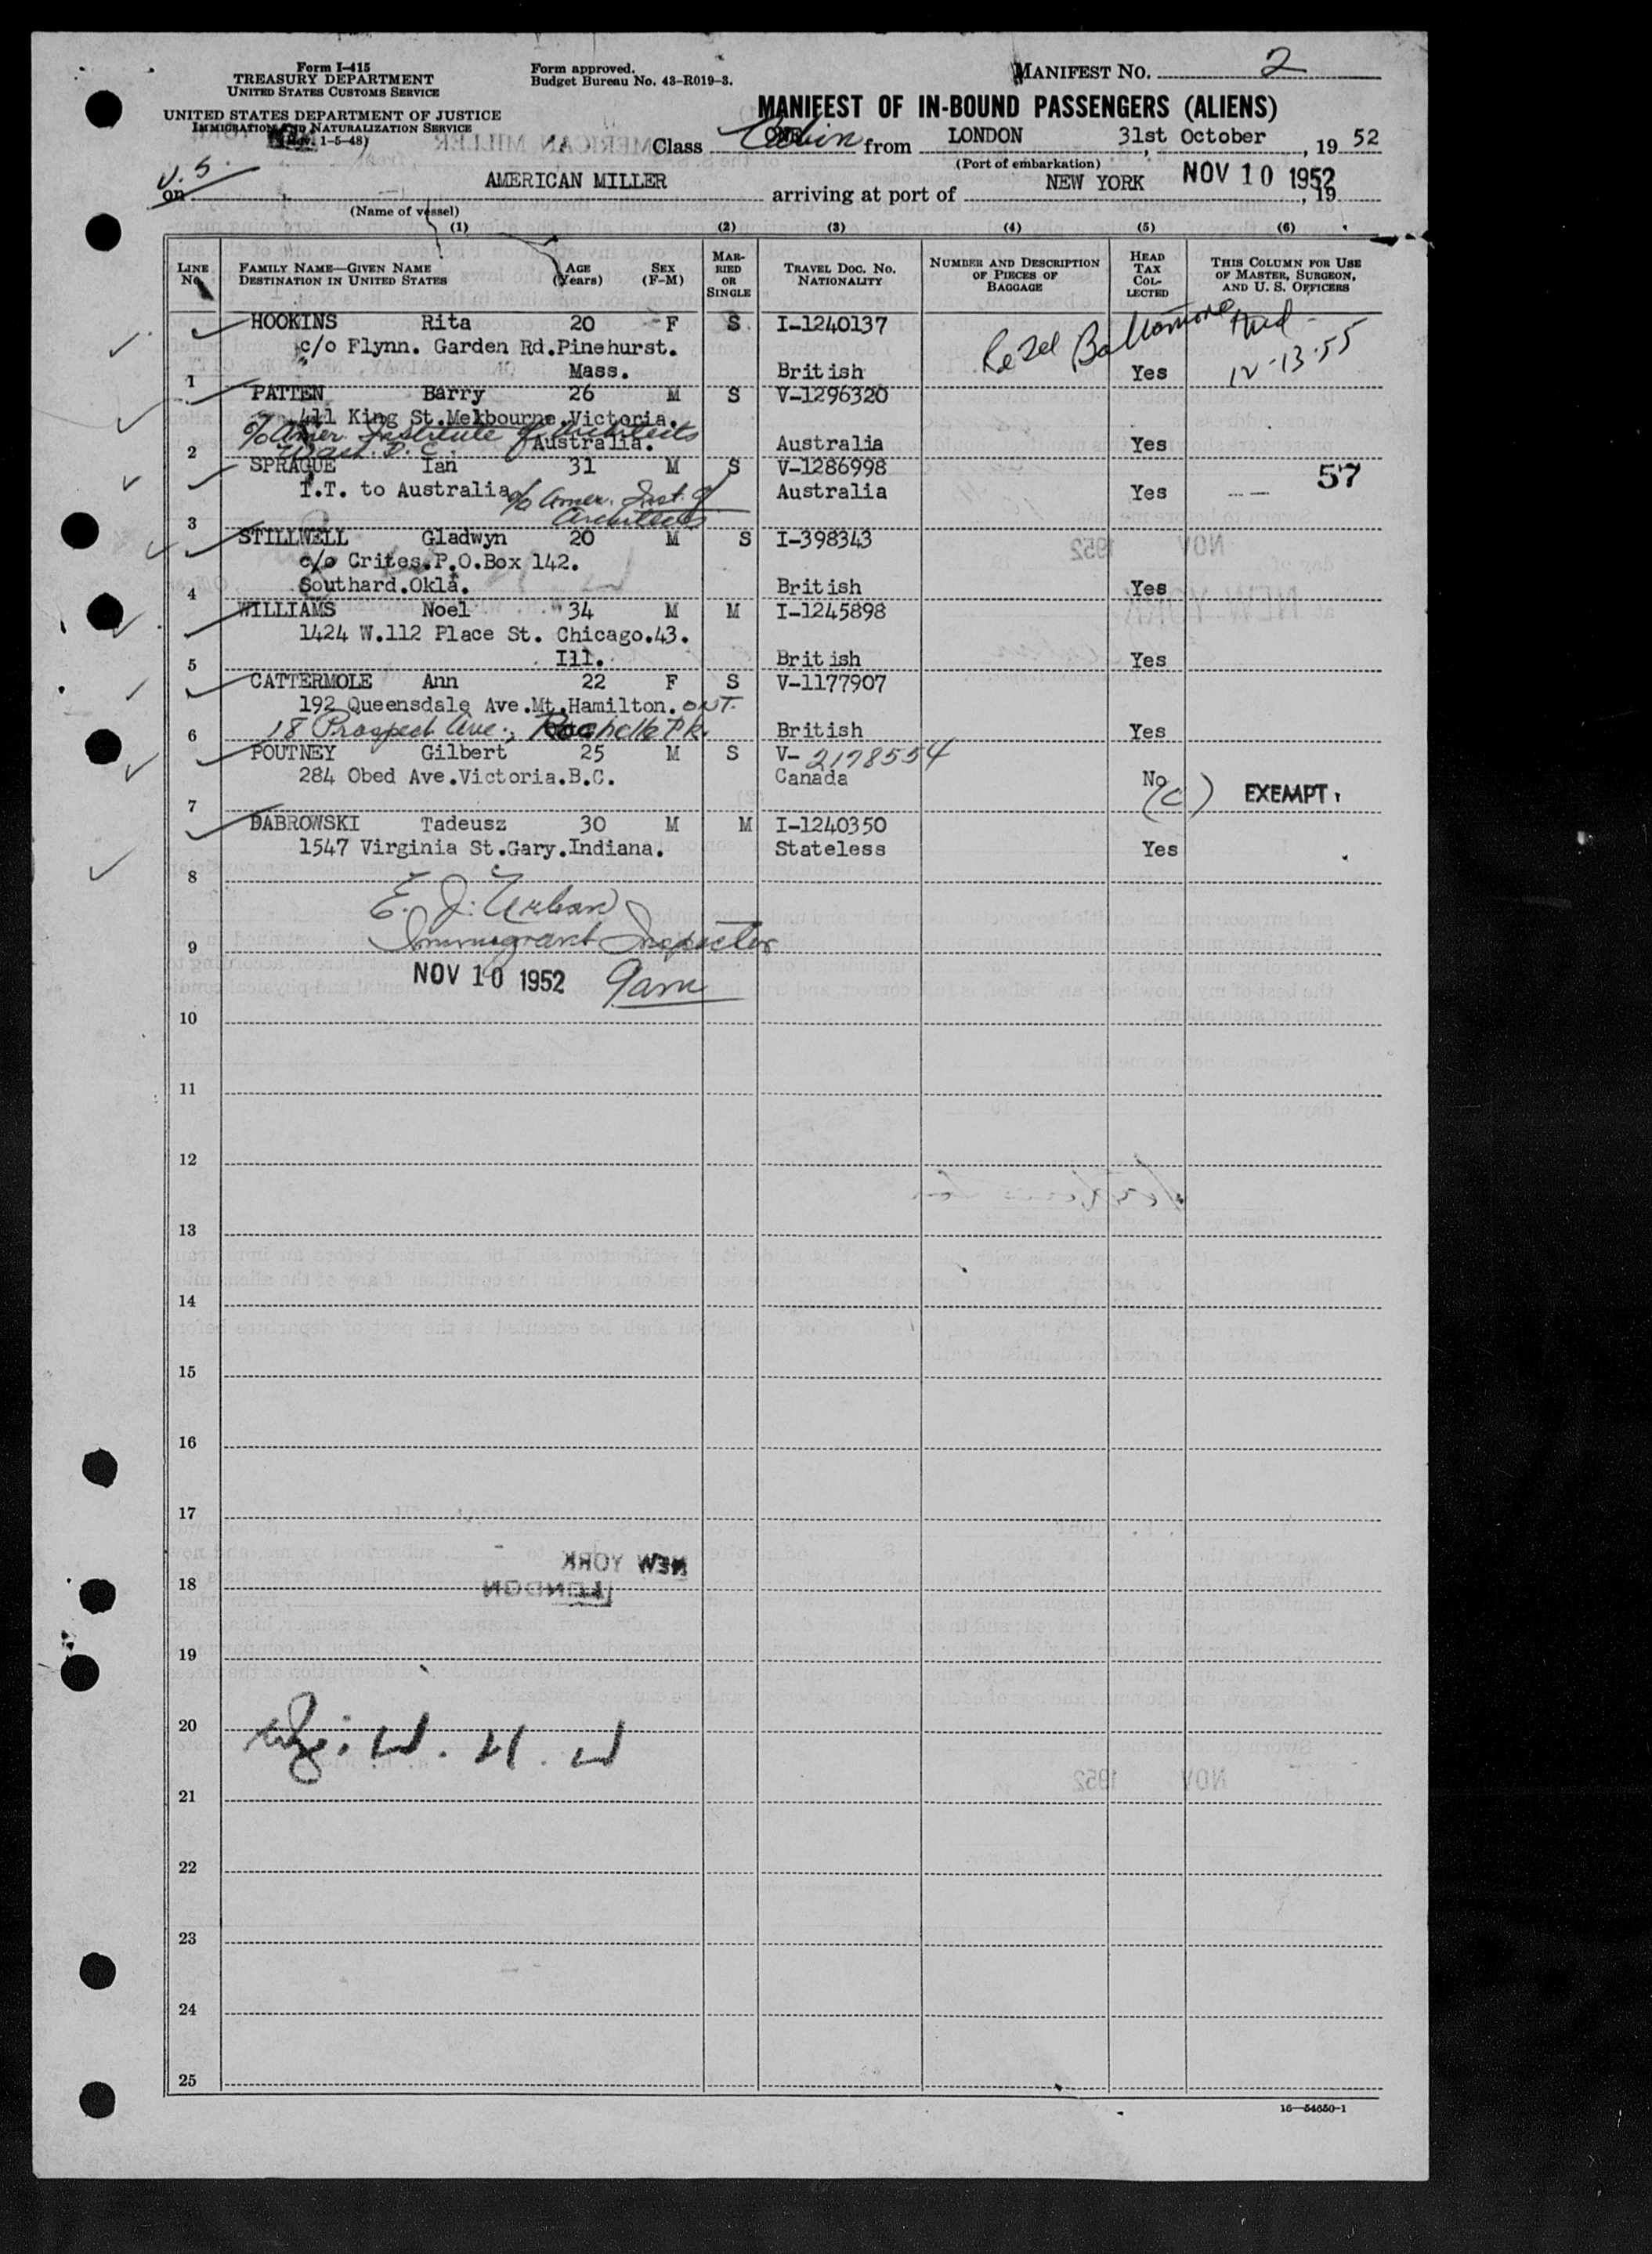 Form I-415
TREASURY DEPARTMENT
UNITED STATES CUSTOMS SERVICE
UNITED STATES DEPARTMENT OF JUSTICE
IMMIGRATION AND NATURALIZATION SERVICE
1-5-48)
Form approved.
Budget Bureau No. 43-R019-3.
MANIFEST NO. 2
MANIFEST OF IN-BOUND PASSENGERS (ALIENS)
Class Cabin from LONDON, 31st October, 19 52
(Port of embarkation)
U.S.
on AMERICAN MILLER arriving at port of NEW YORK NOV 10 1952, 19
(Name of vessel)
(1) (2) (3) (4) (5) (6)
LINE No. FAMILY NAME—GIVEN NAME DESTINATION IN UNITED STATES AGE (Years) SEX (F-M) MARRIED OR SINGLE TRAVEL DOC. NO. NATIONALITY NUMBER AND DESCRIPTION OF PIECES OF BAGGAGE HEAD TAX COLLECTED THIS COLUMN FOR USE OF MASTER, SURGEON, AND U. S. OFFICERS
HOOKINS Rita 20 F S I-1240137 Baltimore Md.
c/o Flynn. Garden Rd.Pinehurst. 12-13-55
1 Mass. British Yes
PATTEN Barry 26 M S V-1296320
411 King St.Melbourne.Victoria.
c/o Amer. Institute of Architects
2 Wash. D.C. Australia. Australia Yes
SPRAGUE Ian 31 M S V-1286998 57
I.T. to Australia c/o Amer. Inst. of Australia Yes
3 Architects
STILLWELL Gladwyn 20 M S I-398343
c/o Crites.P.O.Box 142.
4 Southard.Okla. British Yes
WILLIAMS Noel 34 M M I-1245898
1424 W.112 Place St. Chicago.43.
5 Ill. British Yes
CATTERMOLE Ann 22 F S V-1177907
192 Queensdale Ave.Mt.Hamilton. ONT.
6 18 Prospect Ave., Rochelle Pk. British Yes
POUTNEY Gilbert 25 M S V-2178554
284 Obed Ave.Victoria.B.C. Canada No (C) EXEMPT
7
DABROWSKI Tadeusz 30 M M I-1240350
1547 Virginia St.Gary.Indiana. Stateless Yes
8
E. J. Urban
9 Immigrant Inspector
NOV 10 1952 9am
10
11
12
13
14
15
16
17
NEW YORK
18 LONDON
19
20
21
22
23
24
25
16—54650-1